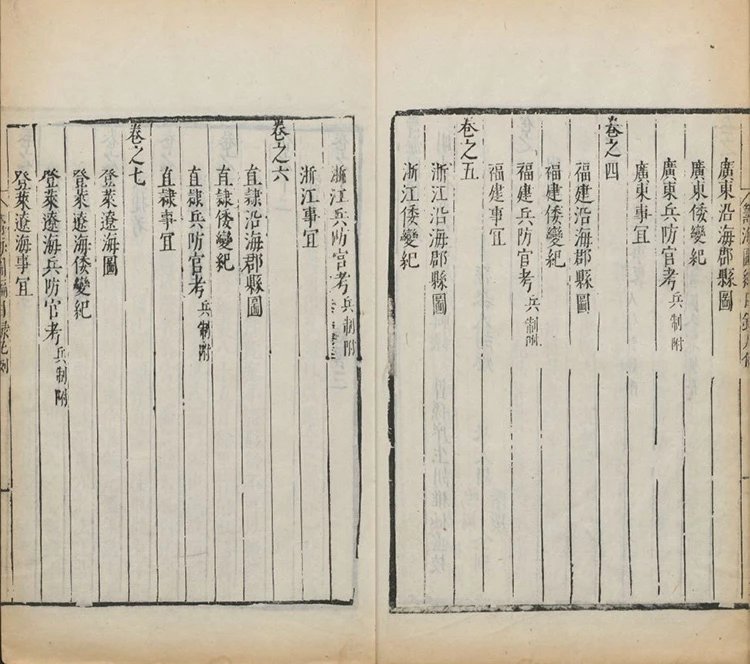 廣東沿海郡縣圖
廣東倭變紀
廣東兵防官考兵制附
廣東事宜
卷之四
福建沿海郡縣圖
福建倭變紀
福建兵防官考兵制附
福建事宜
卷之五
浙江沿海郡縣圖
浙江倭變紀
浙江兵防官考兵制附
浙江事宜
卷之六
直隷沿海郡縣圖
直隷倭變紀
直隷兵防官考兵制附
直隷事宜
卷之七
登萊遼海圖
登萊遼海倭變紀
登萊遼海兵防官考兵制附
登萊遼海事宜